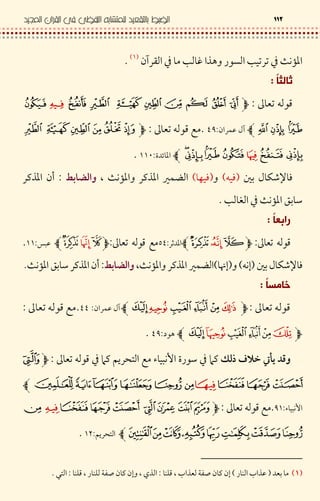 ١١٢ الضبط بالتقعيد للمتشابه اللفظي في القرآن المجيد
المؤنث في ترتيب السور وهذا غالب ما في القرآن (١) .
ثالثاً :
قوله تعالى : ﴿ أَنِّي أَخْلُقُ لَكُم مِّنَ الطِّينِ كَهَيْئَةِ الطَّيْرِ فَأَنفُخُ فِيهِ فَيَكُونُ
طَيْرًا بِإِذْنِ اللَّهِ ﴾ آل عمران: ٤٩ .مع قوله تعالى : ﴿ وَإِذْ تَخْلُقُ مِنَ الطِّينِ كَهَيْئَةِ الطَّيْرِ
بِإِذْنِي فَتَنفُخُ فِيهَا فَتَكُونُ طَيْرًا بِإِذْنِي ﴾ المائدة: ١١٠ .
فالإشكال بين (فيه) و(فيها) الضمير المذكر والمؤنث ، والضابط : أن المذكر
سابق المؤنث في الغالب .
رابعاً :
قوله تعالى: ﴿ كَلَّا إِنَّهُ تَذْكِرَةٌ ﴾المدثر:٥٤مع قوله تعالى:﴿ كَلَّا إِنَّهَا تَذْكِرَةٌ ﴾ عبس:١١.
فالإشكال بين (إنه) و(إنها)الضمير المذكر والمؤنث، والضابط: أن المذكر سابق المؤنث.
خامساً :
قوله تعالى : ﴿ ذَٰلِكَ مِنْ أَنبَاءِ الْغَيْبِ نُوحِيهِ إِلَيْكَ ﴾آل عمران: ٤٤.مع قوله تعالى :
﴿ تِلْكَ مِنْ أَنبَاءِ الْغَيْبِ نُوحِيهَا إِلَيْكَ ﴾ هود: ٤٩ .
وقد يأتي خلاف ذلك كما في سورة الأنبياء مع التحريم كما في قوله تعالى : ﴿ وَالَّتِي
أَحْصَنَتْ فَرْجَهَا فَنَفَخْنَا فِيهَا مِن رُّوحِنَا وَجَعَلْنَاهَا وَابْنَهَا آيَةً لِّلْعَالَمِينَ ﴾
الأنبياء: ٩١.مع قوله تعالى : ﴿ وَمَرْيَمَ ابْنَتَ عِمْرَانَ الَّتِي أَحْصَنَتْ فَرْجَهَا فَنَفَخْنَا فِيهِ مِن
رُّوحِنَا وَصَدَّقَتْ بِكَلِمَاتِ رَبِّهَا وَكُتُبِهِ وَكَانَتْ مِنَ الْقَانِتِينَ ﴾ التحريم: ١٢ .
(١) ما بعد ( عذاب النار ) إن كان صفة لعذاب ، قلنا : الذي ، وإن كان صفة للنار ، قلنا : التي .